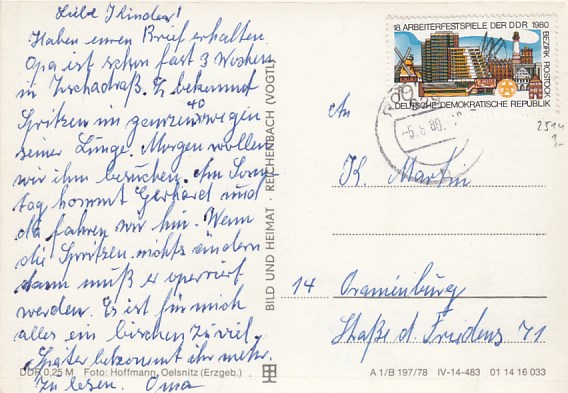 Liebe Kinder!
Haben euren Brief erhalten
Opa ist schon fast 3 Wochen
in Zschadraß. Er bekommt
Spritzen im ganzen 40 wegen
seiner Lunge. Morgen wollen
wir ihn besuchen. Am Sonn-
tag kommt Gerhard und
da fahren wir hin. Wenn
die Spritzen nichts ändern
dann muß er operiert
werden. Es ist für mich
alles ein bischen zuviel.
Später bekommt ihr mehr.
zu lesen. Oma
DDR 0,25 M Foto: Hoffmann, Oelsnitz (Erzgeb.)
BILD UND HEIMAT · REICHENBACH (VOGTL)
18. ARBEITERFESTSPIELE DER DDR 1980
BEZIRK ROSTOCK
DEUTSCHE DEMOKRATISCHE REPUBLIK
-5.6.80
2514
An
K. Martin
14 Oranienburg
Straße d. Friedens 71
A 1/B 197/78 IV-14-483 01 14 16 033